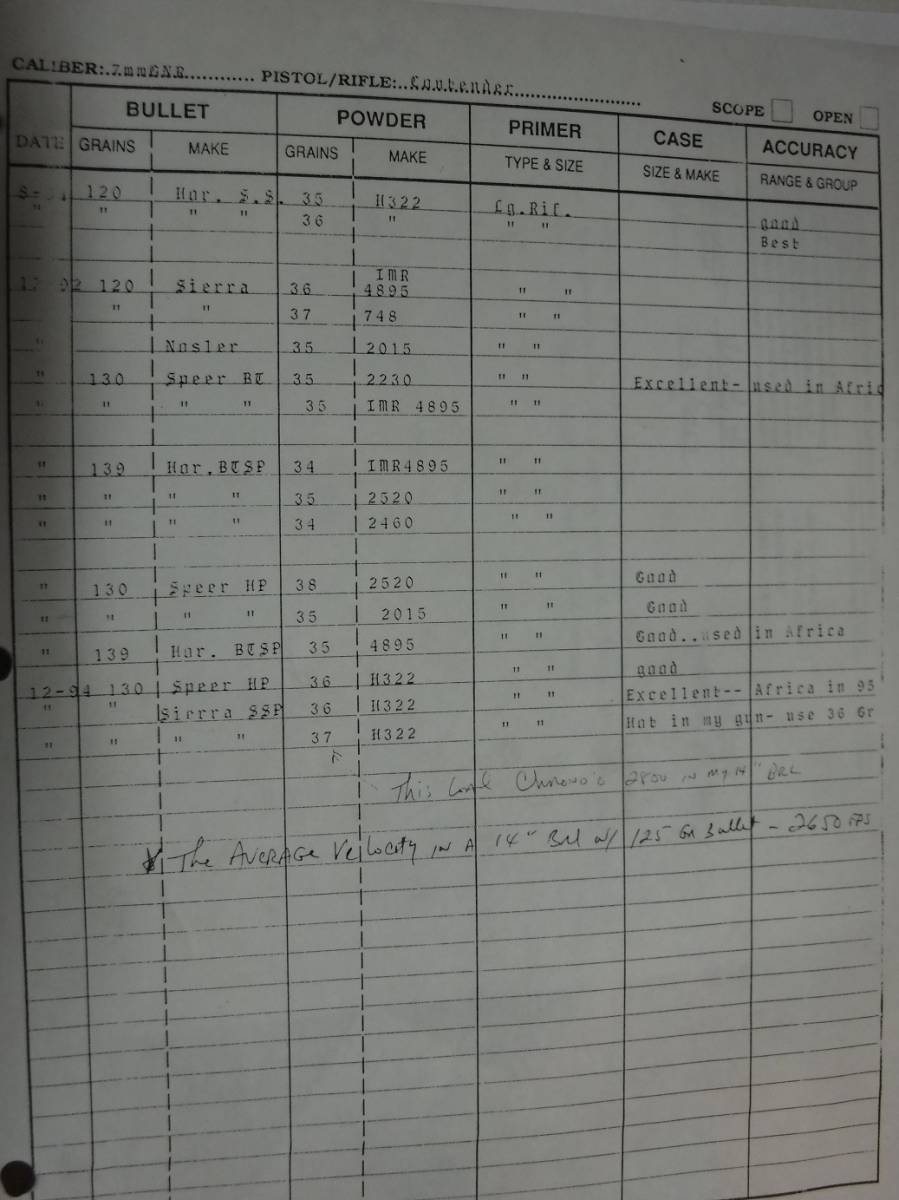 CALIBER:.7mmGNR............ PISTOL/RIFLE:..Contender......................
SCOPE OPEN
BULLET POWDER PRIMER CASE ACCURACY
DATE GRAINS MAKE GRAINS MAKE TYPE & SIZE SIZE & MAKE RANGE & GROUP
120 Hor. S.S. 35 H322 Lg.Rif. good
" " " " 36 " " " Best
IMR
92 120 Sierra 36 4895 " "
" " 37 748 " "
" Nosler 35 2015 " "
" 130 Speer BT 35 2230 " " Excellent- used in Afric
" " " " 35 IMR 4895 " "
" 139 Hor.BTSP 34 IMR4895 " "
" " " " 35 2520 " "
" " " " 34 2460 " "
" 130 Speer HP 38 2520 " " Good
" " " " 35 2015 " " Good
" 139 Hor. BTSP 35 4895 " " Good..used in Africa
12-94 130 Speer HP 36 H322 " " good
" " Sierra SSP 36 H322 " " Excellent-- Africa in 95
" " " " 37 H322 " " Hot in my gun- use 36 Gr
This Load Chrono'd 2800 in my 14" BRL
The AVERAGE Velocity IN A 14" Brl w/ 125 Gr Bullet - 2650 FPS